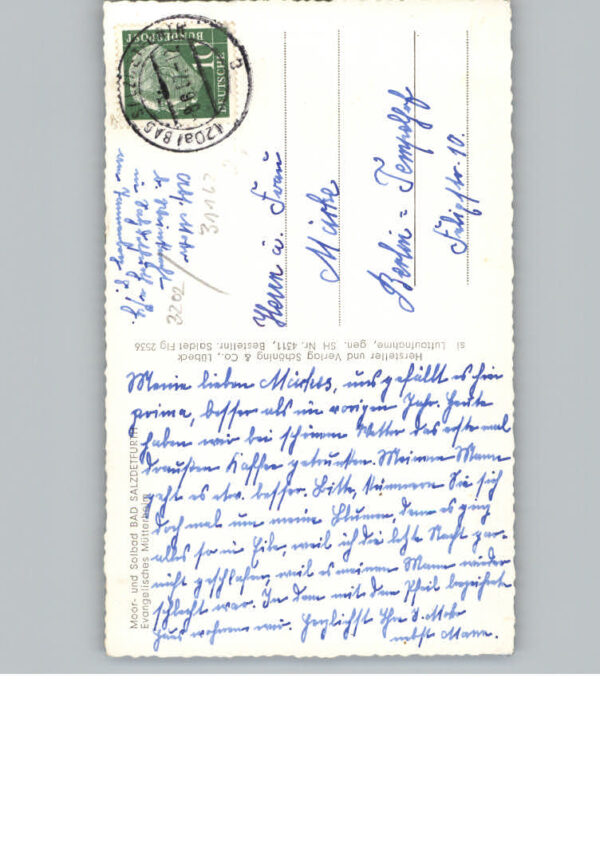 Meine lieben Märkes, uns gefällt es hier
prima, besser als im vorigen Jahr. Heute
haben wir bei schönem Wetter das erste mal
draußen Kaffee getrunken. Meinem Mann
geht es etw. besser. Bitte, kümmern Sie sich
doch mal um meine Blumen, denn es ging
alles so in Eile, weil ich die letzte Nacht gar
nicht geschlafen, weil es meinem Mann wieder
schlecht war. In dem mit dem Pfeil bezeichneten
Haus wohnen wir. Herzlichst Ihre
nebst Mann.
Moor- und Solbad BAD SALZDETFURTH
Evangelisches Mütterheim
Hersteller und Verlag Schöning & Co., Lübeck
si Luftaufnahme, gen. SH Nr. 4311, Bestellnr. Saldet Flg 2536
Herrn u. Frau
Märke
Berlin = Tempelhof
Str. 10.
DEUTSCHE
BUNDESPOST
10
(20a) BAD
3202
31163